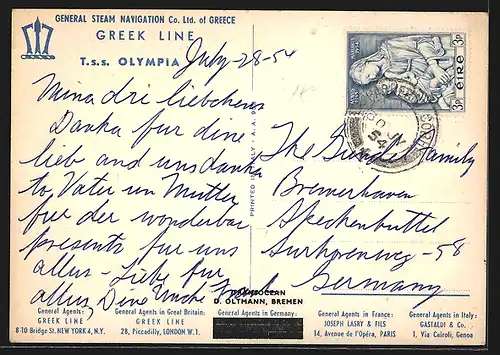 GENERAL STEAM NAVIGATION Co. Ltd. of GREECE
GREEK LINE
T.s.s. OLYMPIA
July-28-54
Mina dri liebchens
Danka fur dine
lieb and uns danka
to Vater un Mutter
fur der wonderbar
presents fur uns
allus - Liebe fur
allus, Dine Unche
PRINTED IN ITALY
3p éIRe 3p
The Gunder Family
Bremerhaven
Speckenbuttel
58
Germany
TRANSOCEAN
D. OLTMANN, BREMEN
General Agents:
GREEK LINE
8-10 Bridge St. NEW YORK 4, N.Y.
General Agents in Great Britain:
GREEK LINE
28, Piccadilly, LONDON W. 1.
General Agents in Germany:
General Agents in France:
JOSEPH LASRY & FILS
14, Avenue de l'Opéra, PARIS
General Agents in Italy:
GASTALDI & Co.
1, Via Cairoli, Genoa